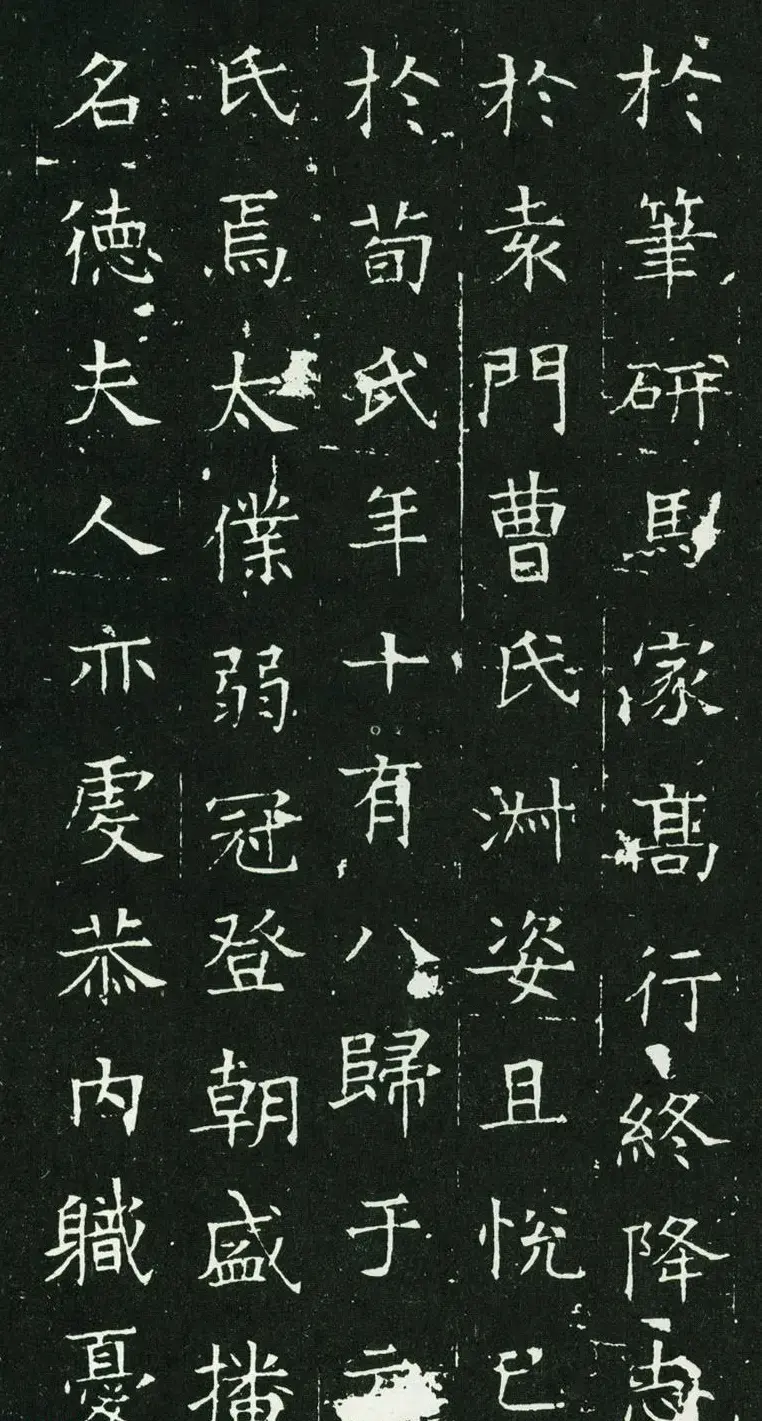 於筆研馬家髙行終降志
於袁門曹氏淑姿且悅已
於荀氏年十有八歸于元
氏焉太僕弱冠登朝盛播
名德夫人亦虔恭内職憂